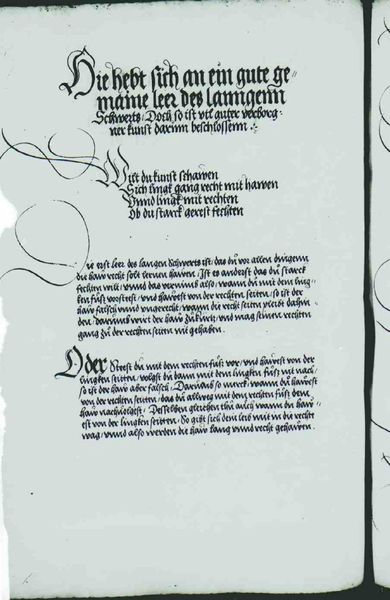 Hie hebt sich an ein gute ge=
maine leer des lanngenn
Schwerts. Doch so ist vil guter verborg=
ner kunst darinn beschlossenn.
Wilt du kunst schawen
Sich lingk gang recht mit hawen
Vnnd lingk mit rechten
Ob du starck gerest fechten
Die erst leer des langen schwerts ist: das du vor allen dingenn
die haw recht solt lernen hawen. Ist es anderst das du starck
fechten wilt, vnnd das vernimb also, wann du mit dem ling=
ken fůß vorstest, vnd hawest von der rechten seiten, so ist der
haw falsch vnnd vngerecht, wann die recht seiten pleibt dahin=
den. Darumb wirt der haw zu kurtz, vnd mag seinen rechten
gang zu der rechten seiten nit gehaben.
Oder Steest du mit dem rechten fuß vor, vnd hawest von der
lingken seitten, volgst du dann mit dem lingken fuß nit nach,
so ist der haw aber falsch. Darumb so merck, wann du hawest
von der rechten seitten, das du allweg mit dem rechten fuß dem
haw nachvolgest. Desselben gleichen thu auch wann du haw=
est von der lingken seitten. So gibt sich dein leib mit in die recht
wag, vnnd also werden die haw lang vnnd recht gehawen.